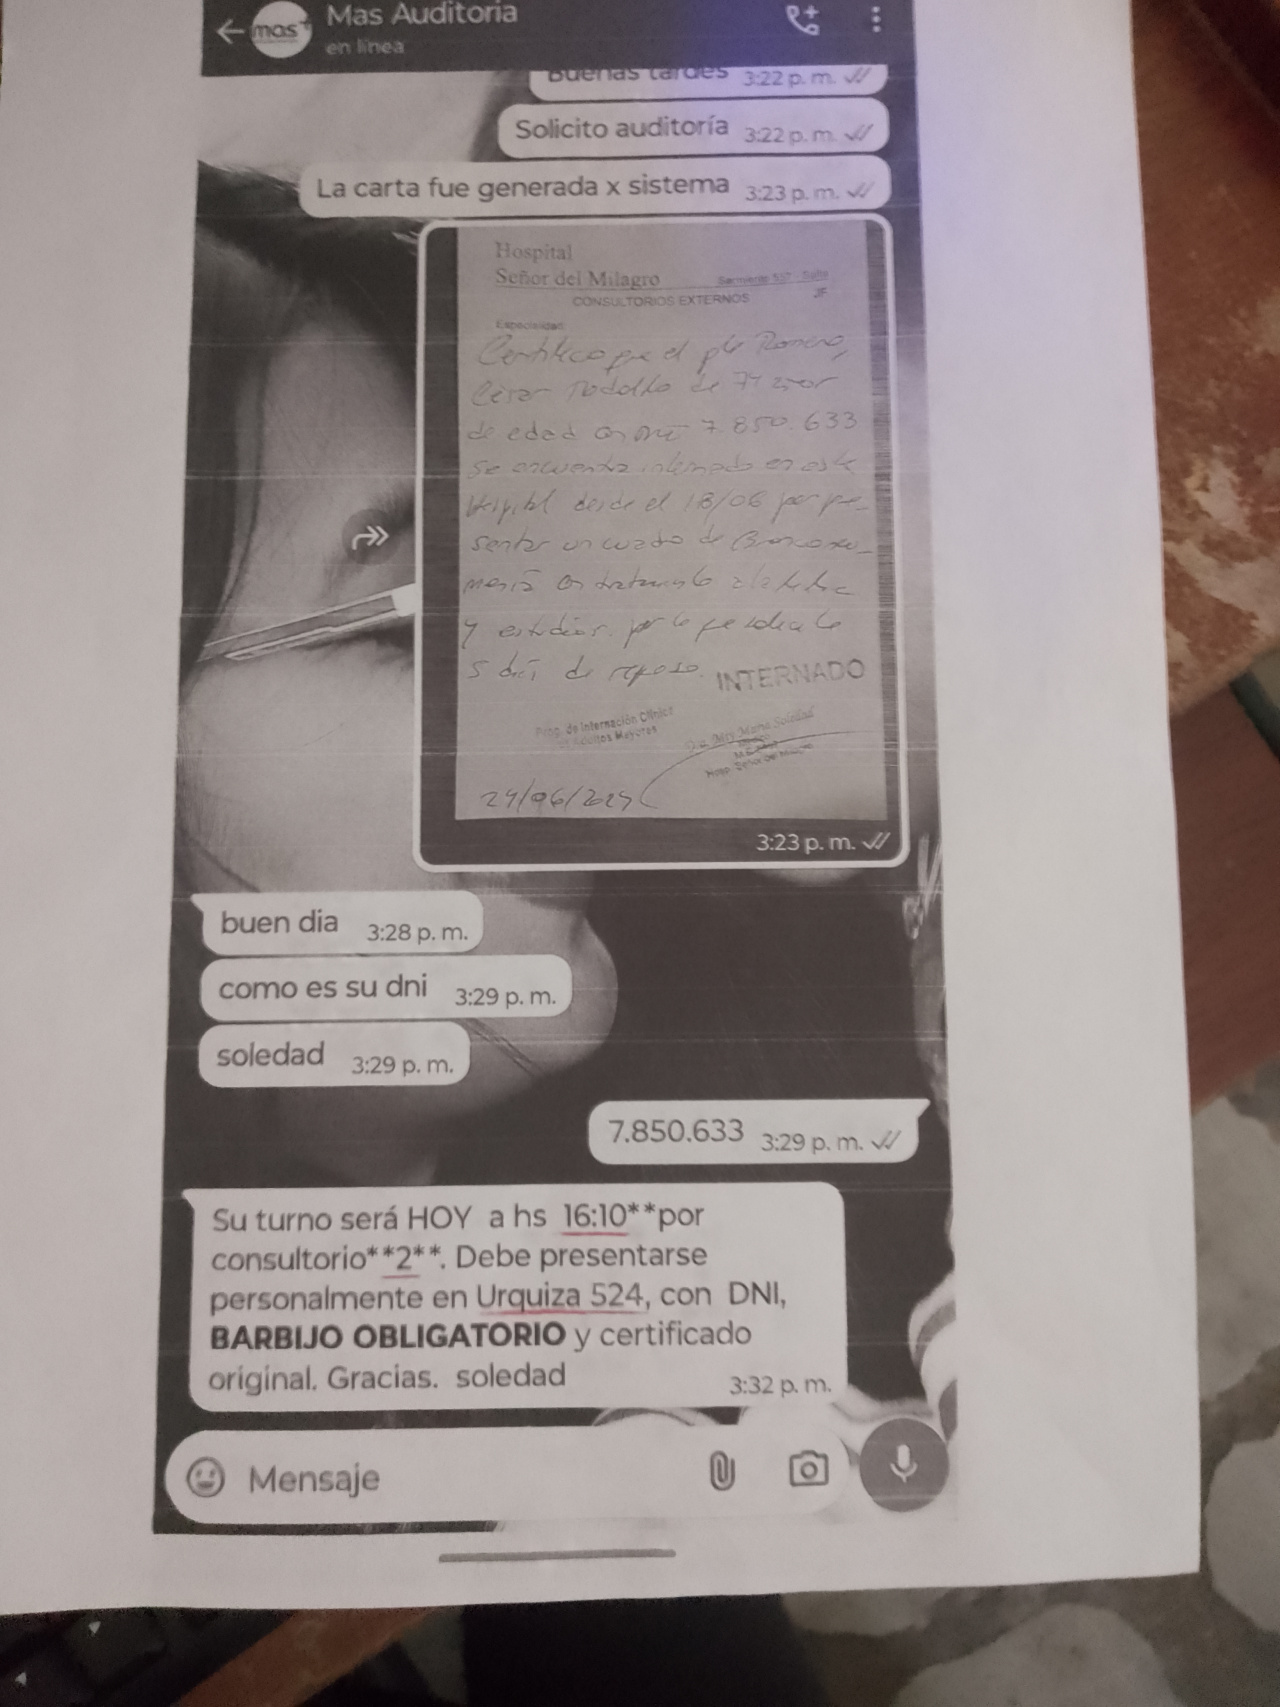 mas+
Mas Auditoria
en línea
Buenas tardes 3:22 p. m.
Solicito auditoría 3:22 p. m.
La carta fue generada x sistema 3:23 p. m.
Hospital
Señor del Milagro Sarmiento 557 - Salta
CONSULTORIOS EXTERNOS
Especialidad
Certifico que el pte Romero,
César Rodolfo de 74 años
de edad con DNI 7.850.633
se encuentra internado en este
Hospital desde el 18/06 por pre-
sentar un cuadro de
con tratamiento
y estudios. por lo que
5 de reposo. INTERNADO
Prog. de Internación Clínica
Adultos Mayores
Maria Soledad
Hosp. Señor del Milagro
24/06/202
3:23 p. m.
buen dia 3:28 p. m.
como es su dni 3:29 p. m.
soledad 3:29 p. m.
7.850.633 3:29 p. m.
Su turno será HOY a hs 16:10**por
consultorio**2**. Debe presentarse
personalmente en Urquiza 524, con DNI,
BARBIJO OBLIGATORIO y certificado
original. Gracias. soledad 3:32 p. m.
Mensaje